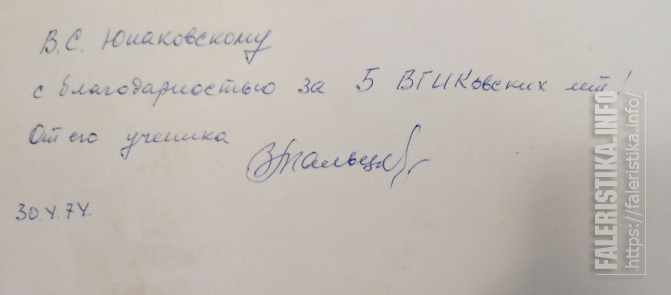 В.С. Юнаковскому
с благодарностью за 5 ВГИКовских лет!
От его ученика
30.V.74.
FALERISTIKA.INFO
https://faleristika.info/